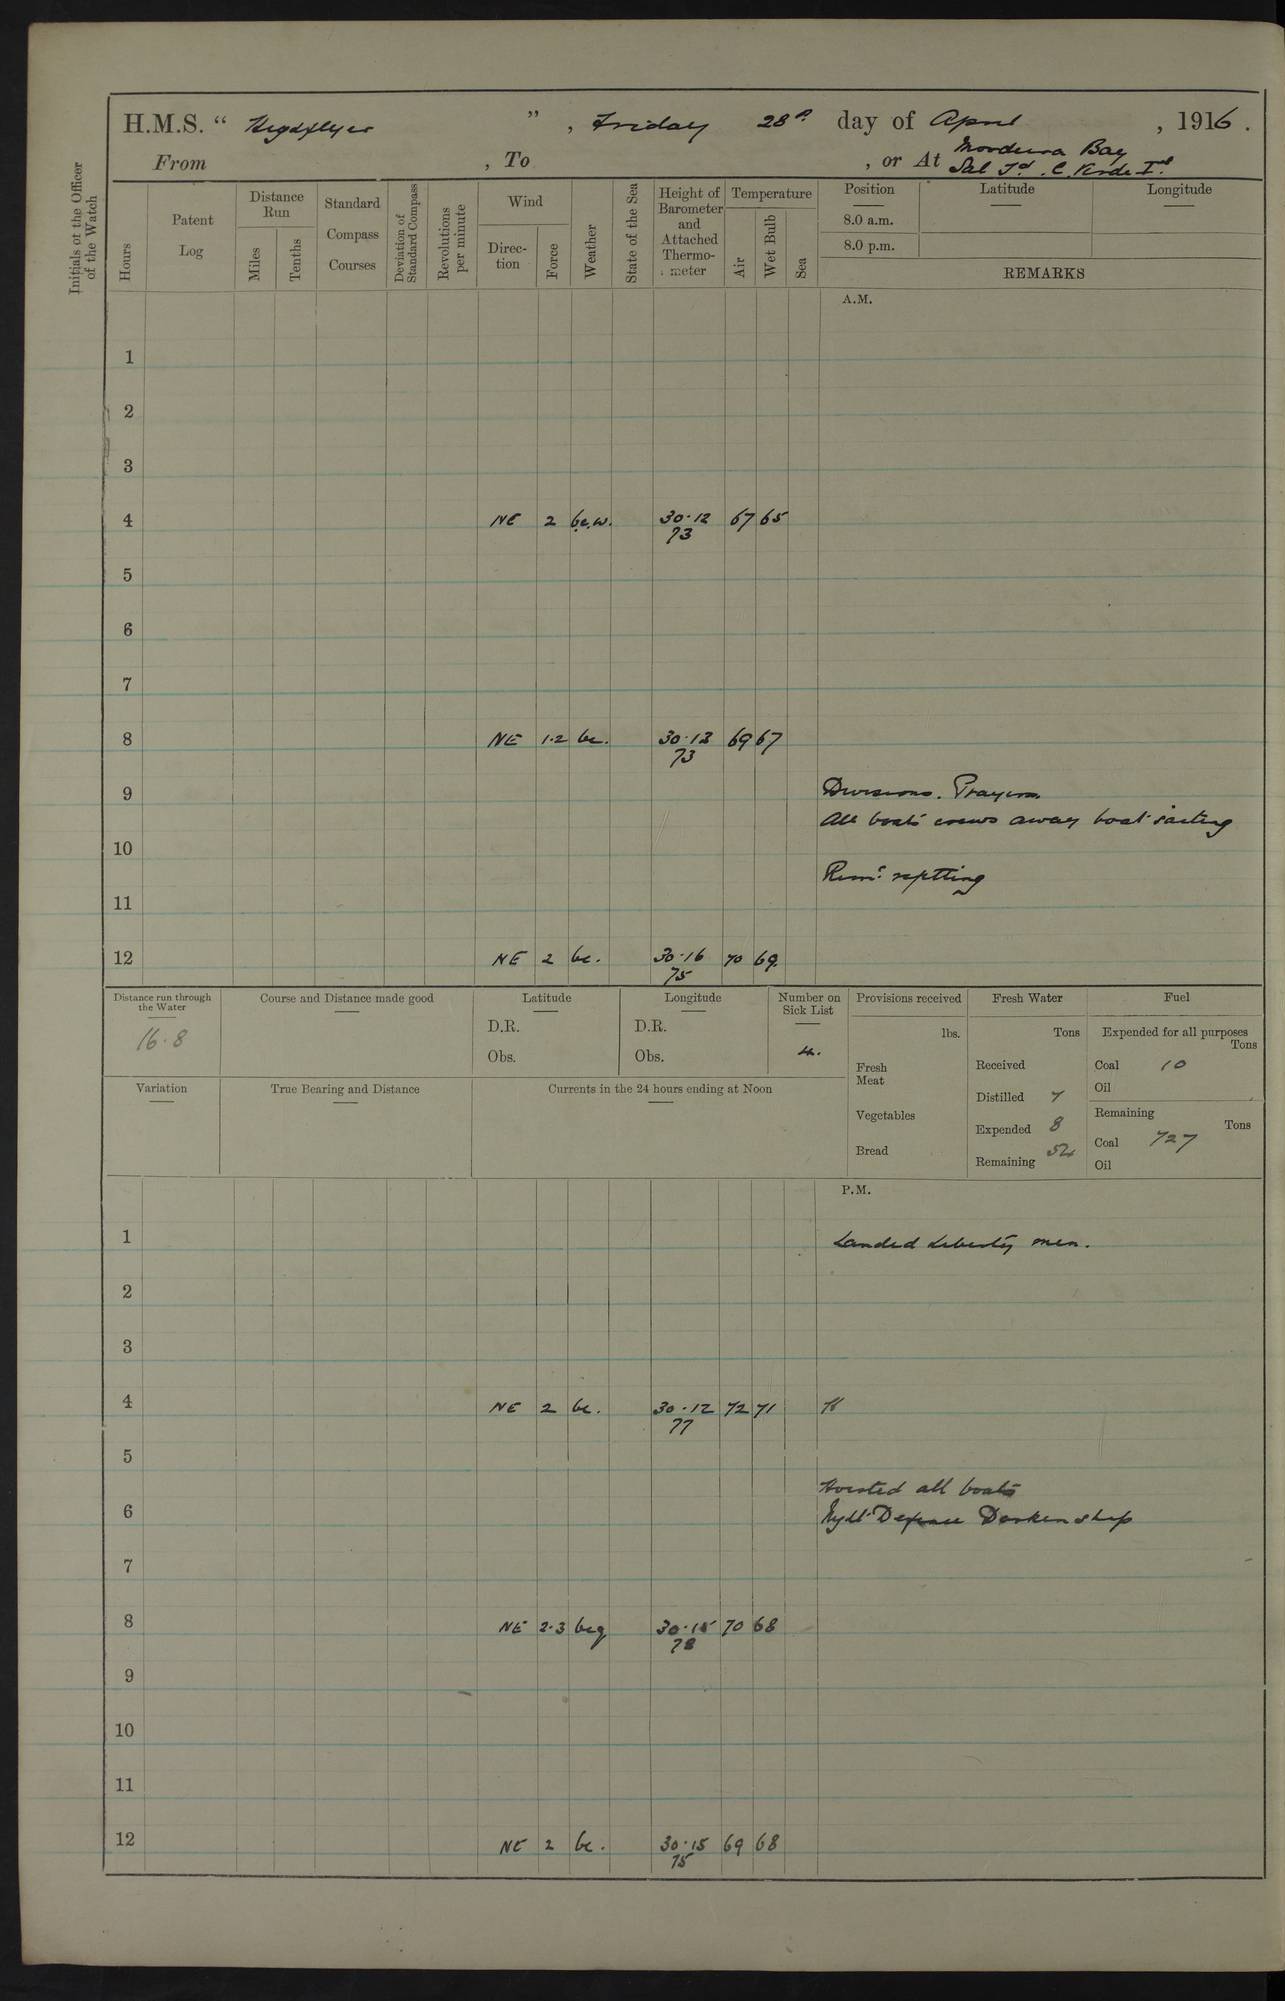 H.M.S. " Highflyer ", Friday 28th day of April, 1916.
From , To , or At Mordeira Bay
Sal Id. C. Verde Isl.
Initials of the Officer of the Watch
Hours
Patent Log
Distance Run
Miles
Tenths
Standard Compass Courses
Deviation of Standard Compass
Revolutions per minute
Wind
Direction
Force
Weather
State of the Sea
Height of Barometer and Attached Thermometer
Temperature
Air
Wet Bulb
Sea
Position Latitude Longitude
8.0 a.m.
8.0 p.m.
REMARKS
A.M.
1
2
3
4 NE 2 b.c.w. 30.12 67 65
73
5
6
7
8 NE 1.2 bc. 30.13 69 67
73
9 Divisions. Prayers.
All boats crews away boat sailing
10
Remr. refitting
11
12 NE 2 bc. 30.16 70 69
75
Distance run through the Water
16.8
Course and Distance made good
Latitude
D.R.
Obs.
Longitude
D.R.
Obs.
Number on Sick List
4.
Variation
True Bearing and Distance
Currents in the 24 hours ending at Noon
Provisions received
lbs.
Fresh Meat
Vegetables
Bread
Fresh Water
Tons
Received
Distilled 7
Expended 8
Remaining 54
Fuel
Expended for all purposes
Tons
Coal 10
Oil
Remaining
Tons
Coal 727
Oil
P.M.
1 Landed Liberty men.
2
3
4 NE 2 bc. 30.12 72 71
77
5
Hoisted all boats
6 Night Defence Darken ship
7
8 NE 2.3 bcq 30.15 70 68
78
9
10
11
12 NE 2 bc. 30.15 69 68
75